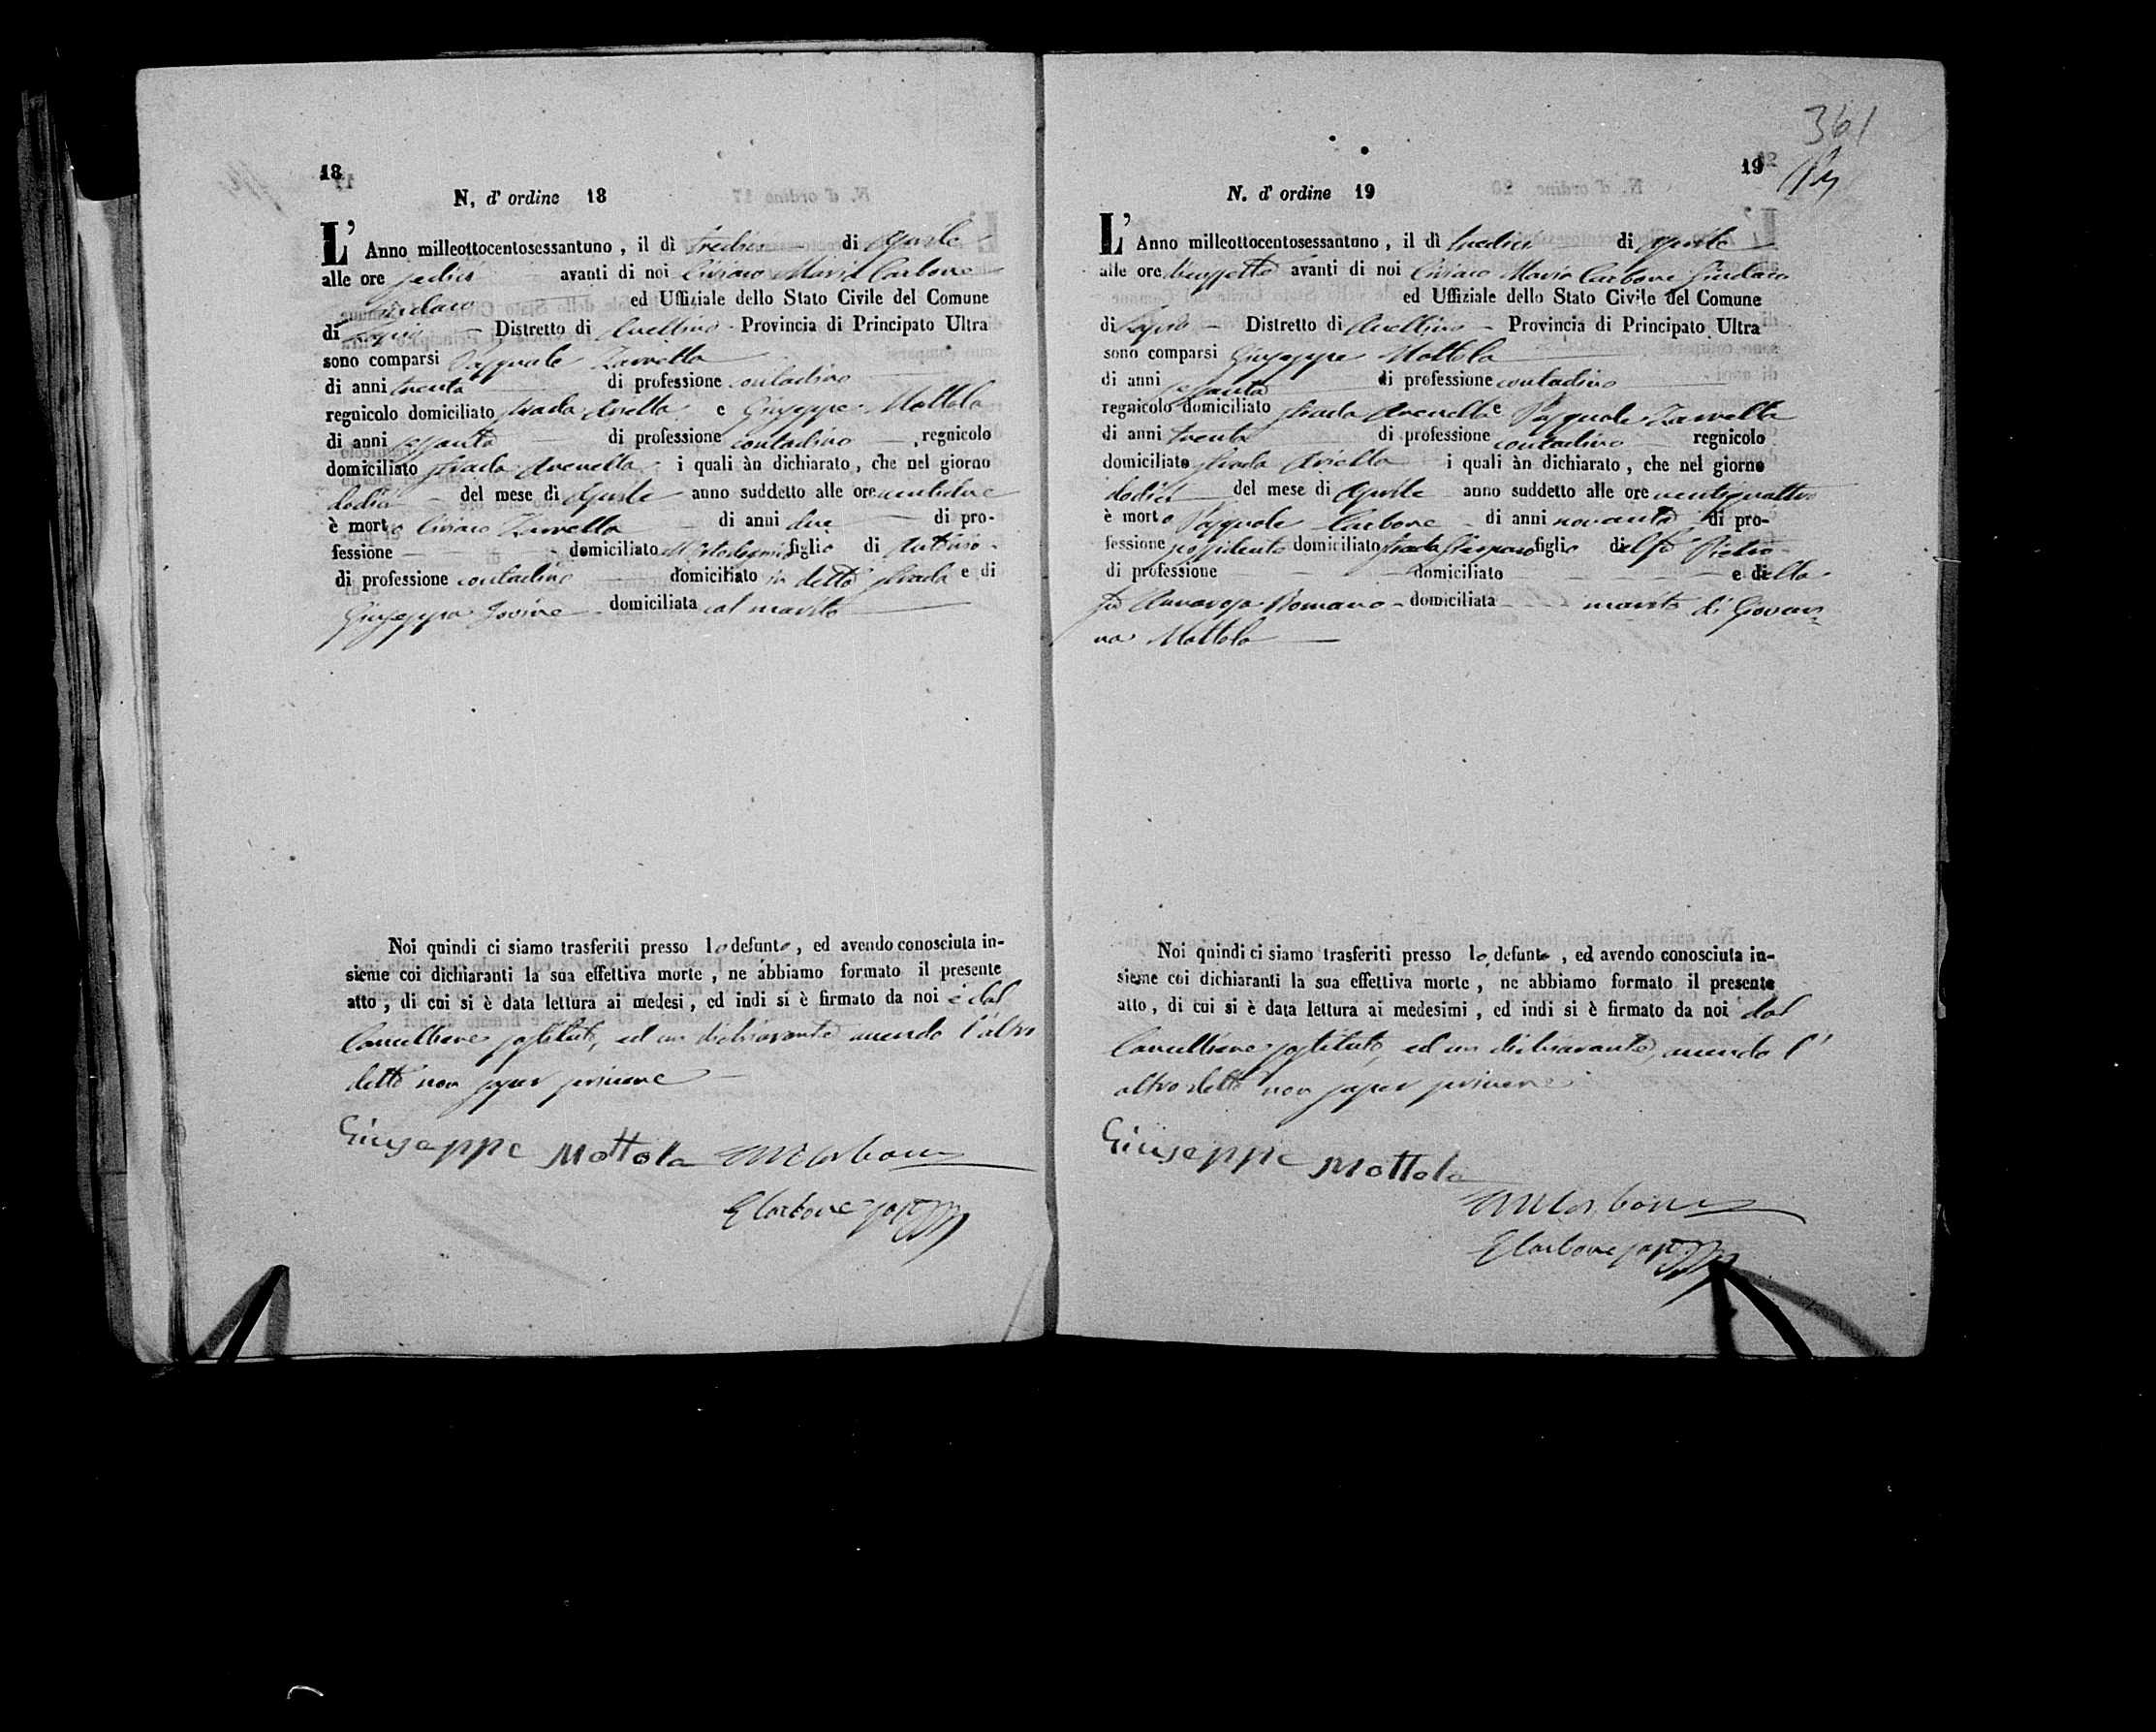 18
N. d' ordine 18
L' Anno milleottocentosessantuno, il dì tredici di Aprile
alle ore sedici avanti di noi Ciriaco Maria Carbone
Sindaco ed Uffiziale dello Stato Civile del Comune
di Lapio Distretto di Avellino Provincia di Principato Ultra
sono comparsi Pasquale Zarrella
di anni trenta di professione contadino
regnicolo domiciliato strada e Giuseppe Mottola
di anni sessanta di professione contadino regnicolo
domiciliato strada Arenella i quali àn dichiarato, che nel giorno
dodici del mese di Aprile anno suddetto alle ore ventidue
è morto Ciriaco Zarrella di anni due di pro-
fessione domiciliato figlio di Antonio
di professione contadino domiciliato in detta strada e di
Giuseppa Iovine domiciliata col marito
Noi quindi ci siamo trasferiti presso lo defunto, ed avendo conosciuta in-
sieme coi dichiaranti la sua effettiva morte, ne abbiamo formato il presente
atto, di cui si è data lettura ai medesi, ed indi si è firmato da noi e dal
Cancelliere sostituto, ed un dichiarante avendo l'altro
detto non saper scrivere
Giuseppe Mottola CMCarbone
ECarbone sost
361
19
N. d' ordine 19
L' Anno milleottocentosessantuno, il dì tredici di Aprile
alle ore avanti di noi Ciriaco Maria Carbone Sindaco
ed Uffiziale dello Stato Civile del Comune
di Lapio Distretto di Avellino Provincia di Principato Ultra
sono comparsi Giuseppe Mottola
di anni sessanta di professione contadino
regnicolo domiciliato strada Arenella e Pasquale Zarrella
di anni trenta di professione contadino regnicolo
domiciliato strada i quali àn dichiarato, che nel giorno
dodici del mese di Aprile anno suddetto alle ore ventiquattro
è morto Pasquale Carbone di anni novanta di pro-
fessione possidente domiciliato strada figlio del fù Pietro
di professione domiciliato e della
fù Annarosa Romano domiciliata marito di Giovan=
na Mottola
Noi quindi ci siamo trasferiti presso lo defunto, ed avendo conosciuta in-
sieme coi dichiaranti la sua effettiva morte, ne abbiamo formato il presente
atto, di cui si è data lettura ai medesimi, ed indi si è firmato da noi dal
Cancelliere sostituto, ed un dichiarante, avendo l'
altro detto non saper scrivere
Giuseppe Mottola
CMCarbone
ECarbone sost